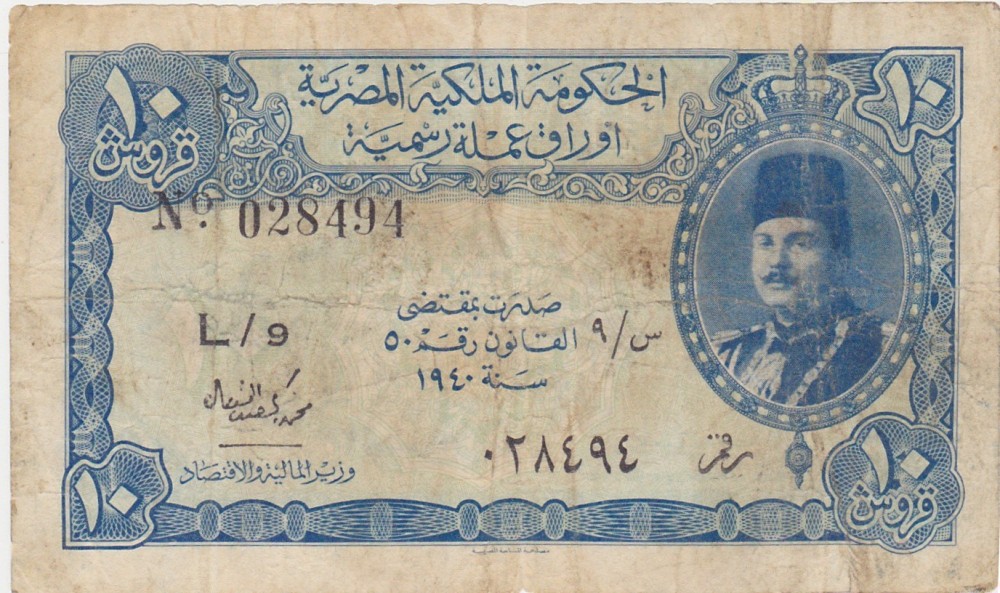 الحكومة الملكية المصرية
أوراق عملة رسمية
١٠
قروش
١٠
Nº 028494
صدرت بمقتضى
القانون رقم ٥٠
سنة ١٩٤٠
س/٩
L/9
وزير المالية والاقتصاد
رقم
٠٢٨٤٩٤
١٠
١٠
قروش